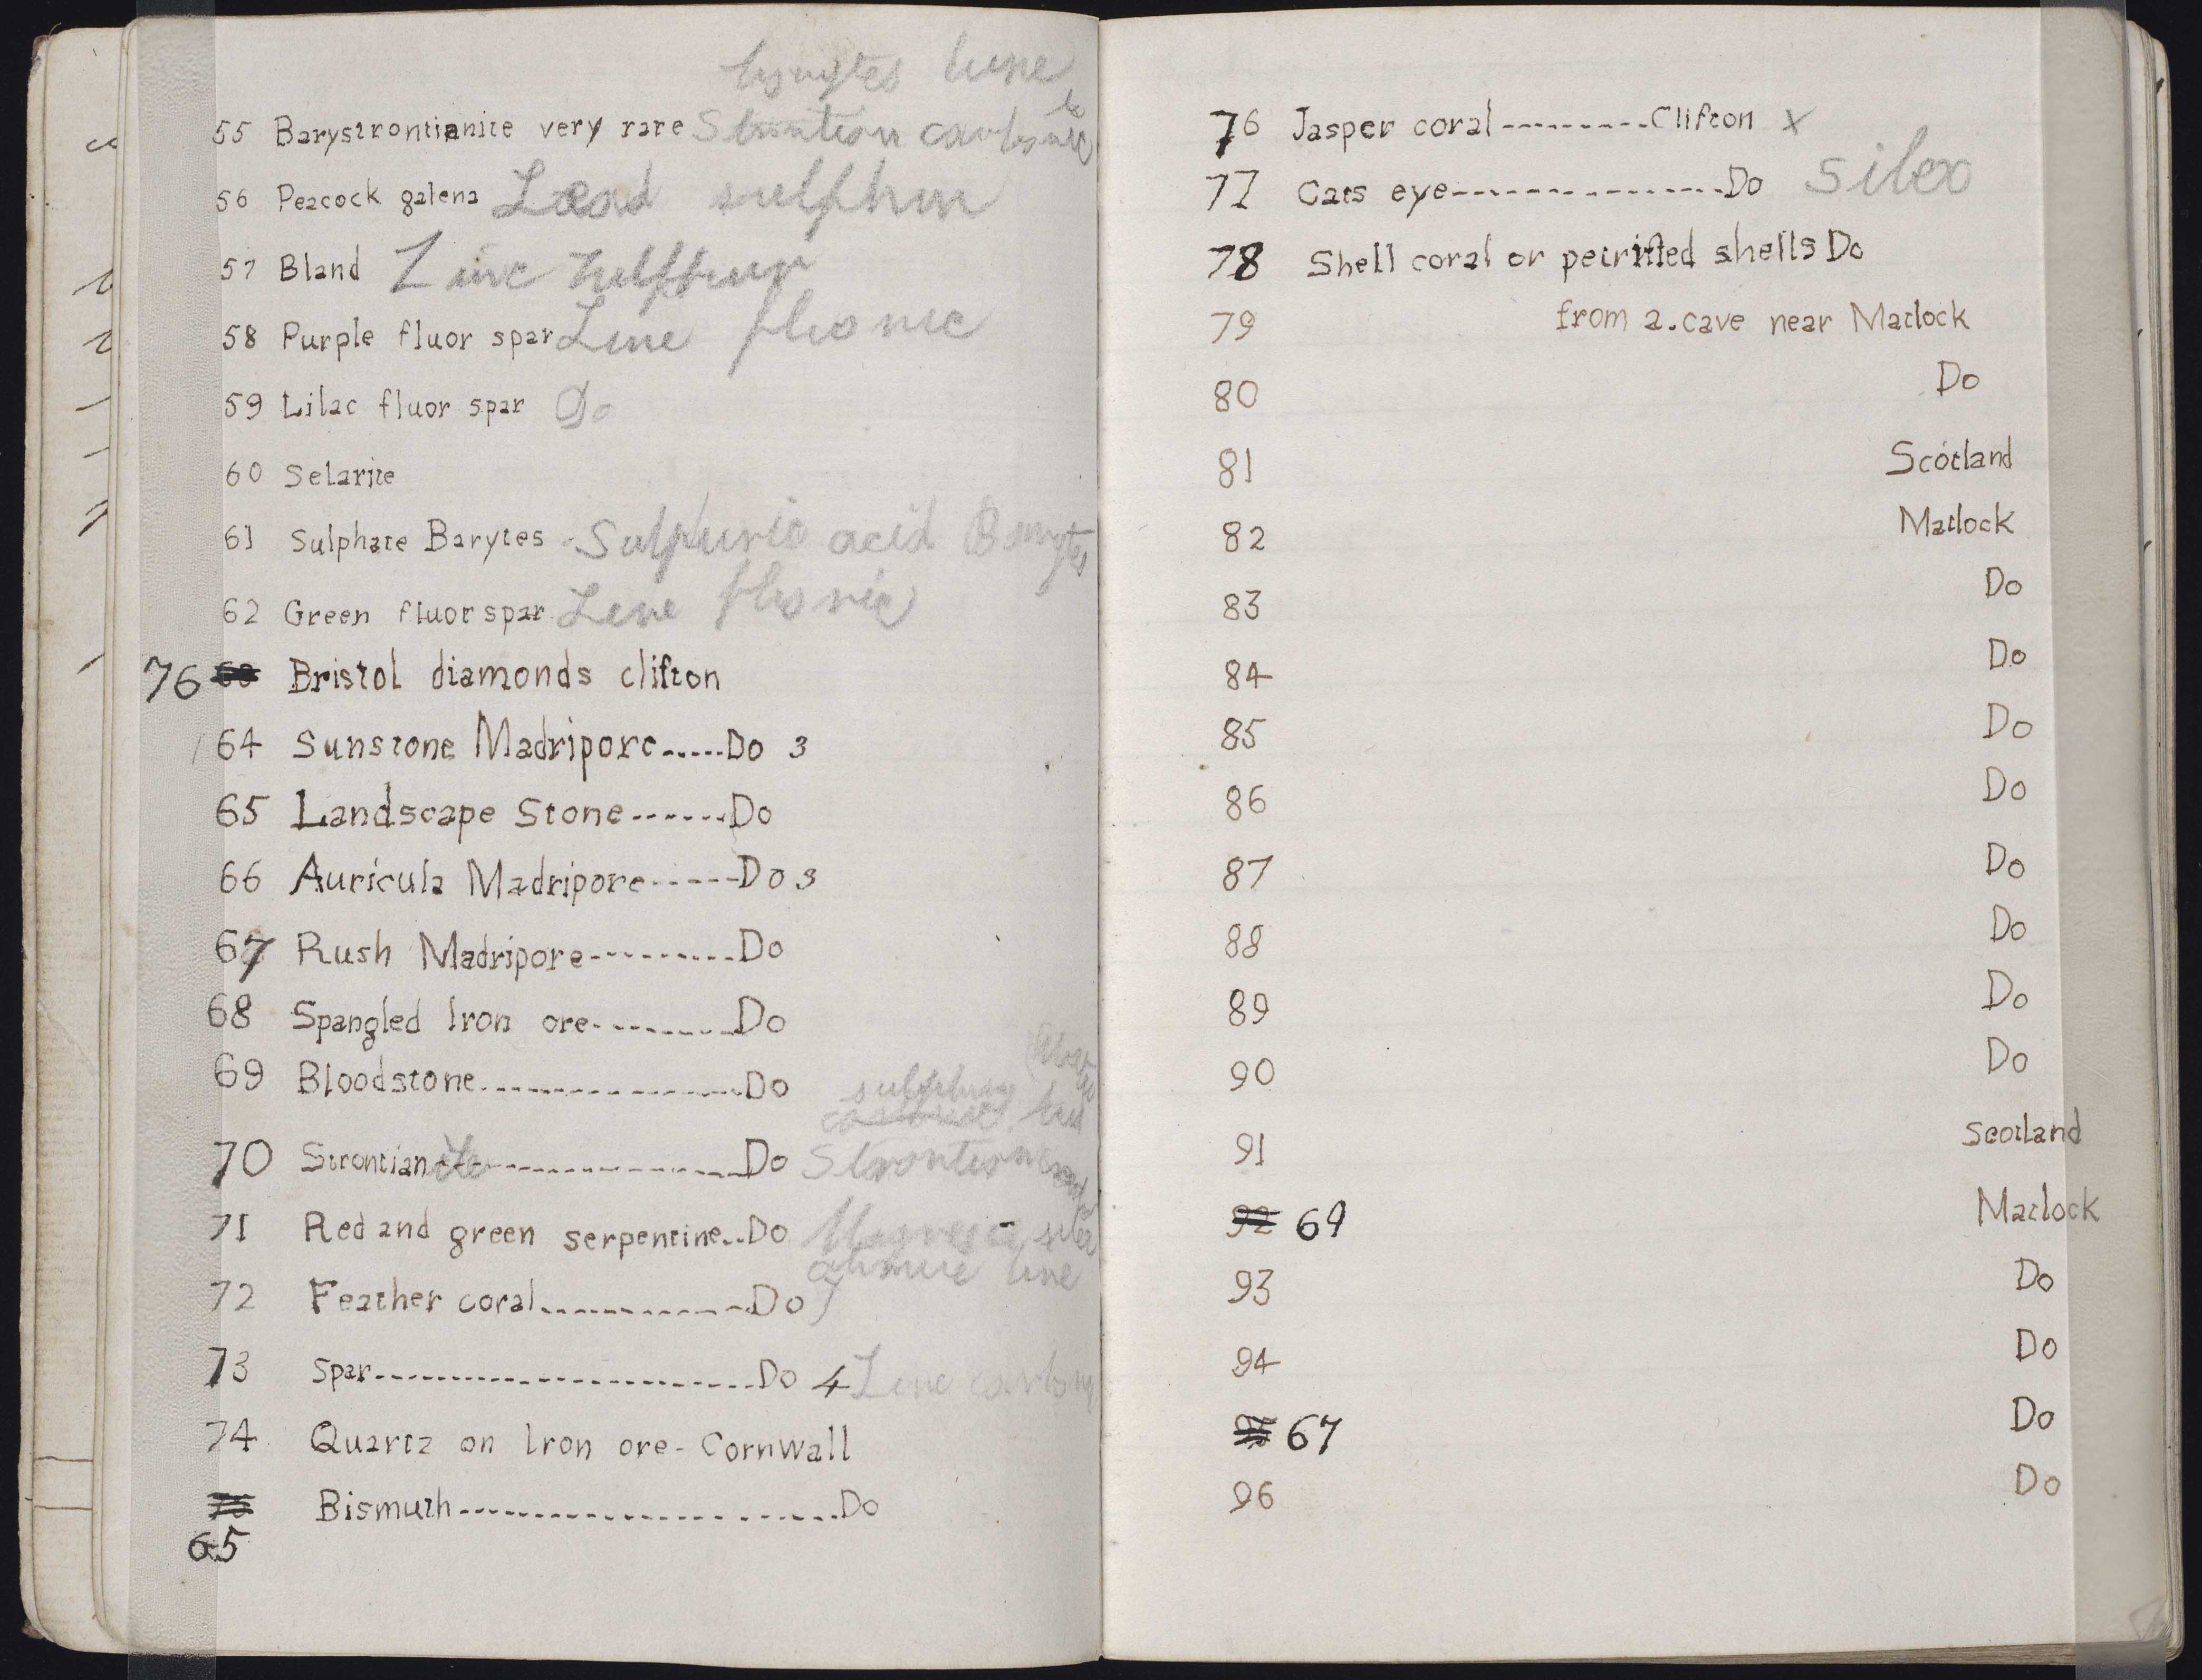 barytes lime
55 Barystrontianite very rare Strontian carbonic
56 Peacock galena Lead sulphur
57 Bland Zinc sulphur
58 Purple fluor spar Lime fluoric
59 Lilac fluor spar Do
60 Selarite
61 Sulphate Barytes Sulphuric acid Barytes
62 Green fluor spar Lime fluoric
76 Bristol diamonds clifton
64 Sunstone Madripore.....Do 3
65 Landscape Stone-------Do
66 Auricula Madripore-----Do 3
67 Rush Madripore----------Do
68 Spangled Iron ore---------Do
69 Bloodstone----------------Do
sulphuric
70 Strontianite----------------Do Strontian
71 Red and green serpentine..Do Magnesia silex
lime
72 Feather coral-------------Do
73 Spar------------------------Do 4 Lime carbonic
74 Quartz on Iron ore- Cornwall
75 Bismuth-----------------------Do
65
76 Jasper coral---------Clifton x
77 Cats eye----------------Do silex
78 Shell coral or petrified shells Do
79 from a.cave near Matlock
80 Do
81 Scotland
82 Matlock
83 Do
84 Do
85 Do
86 Do
87 Do
88 Do
89 Do
90 Do
91 Scotland
92 69 Matlock
93 Do
94 Do
67 Do
96 Do